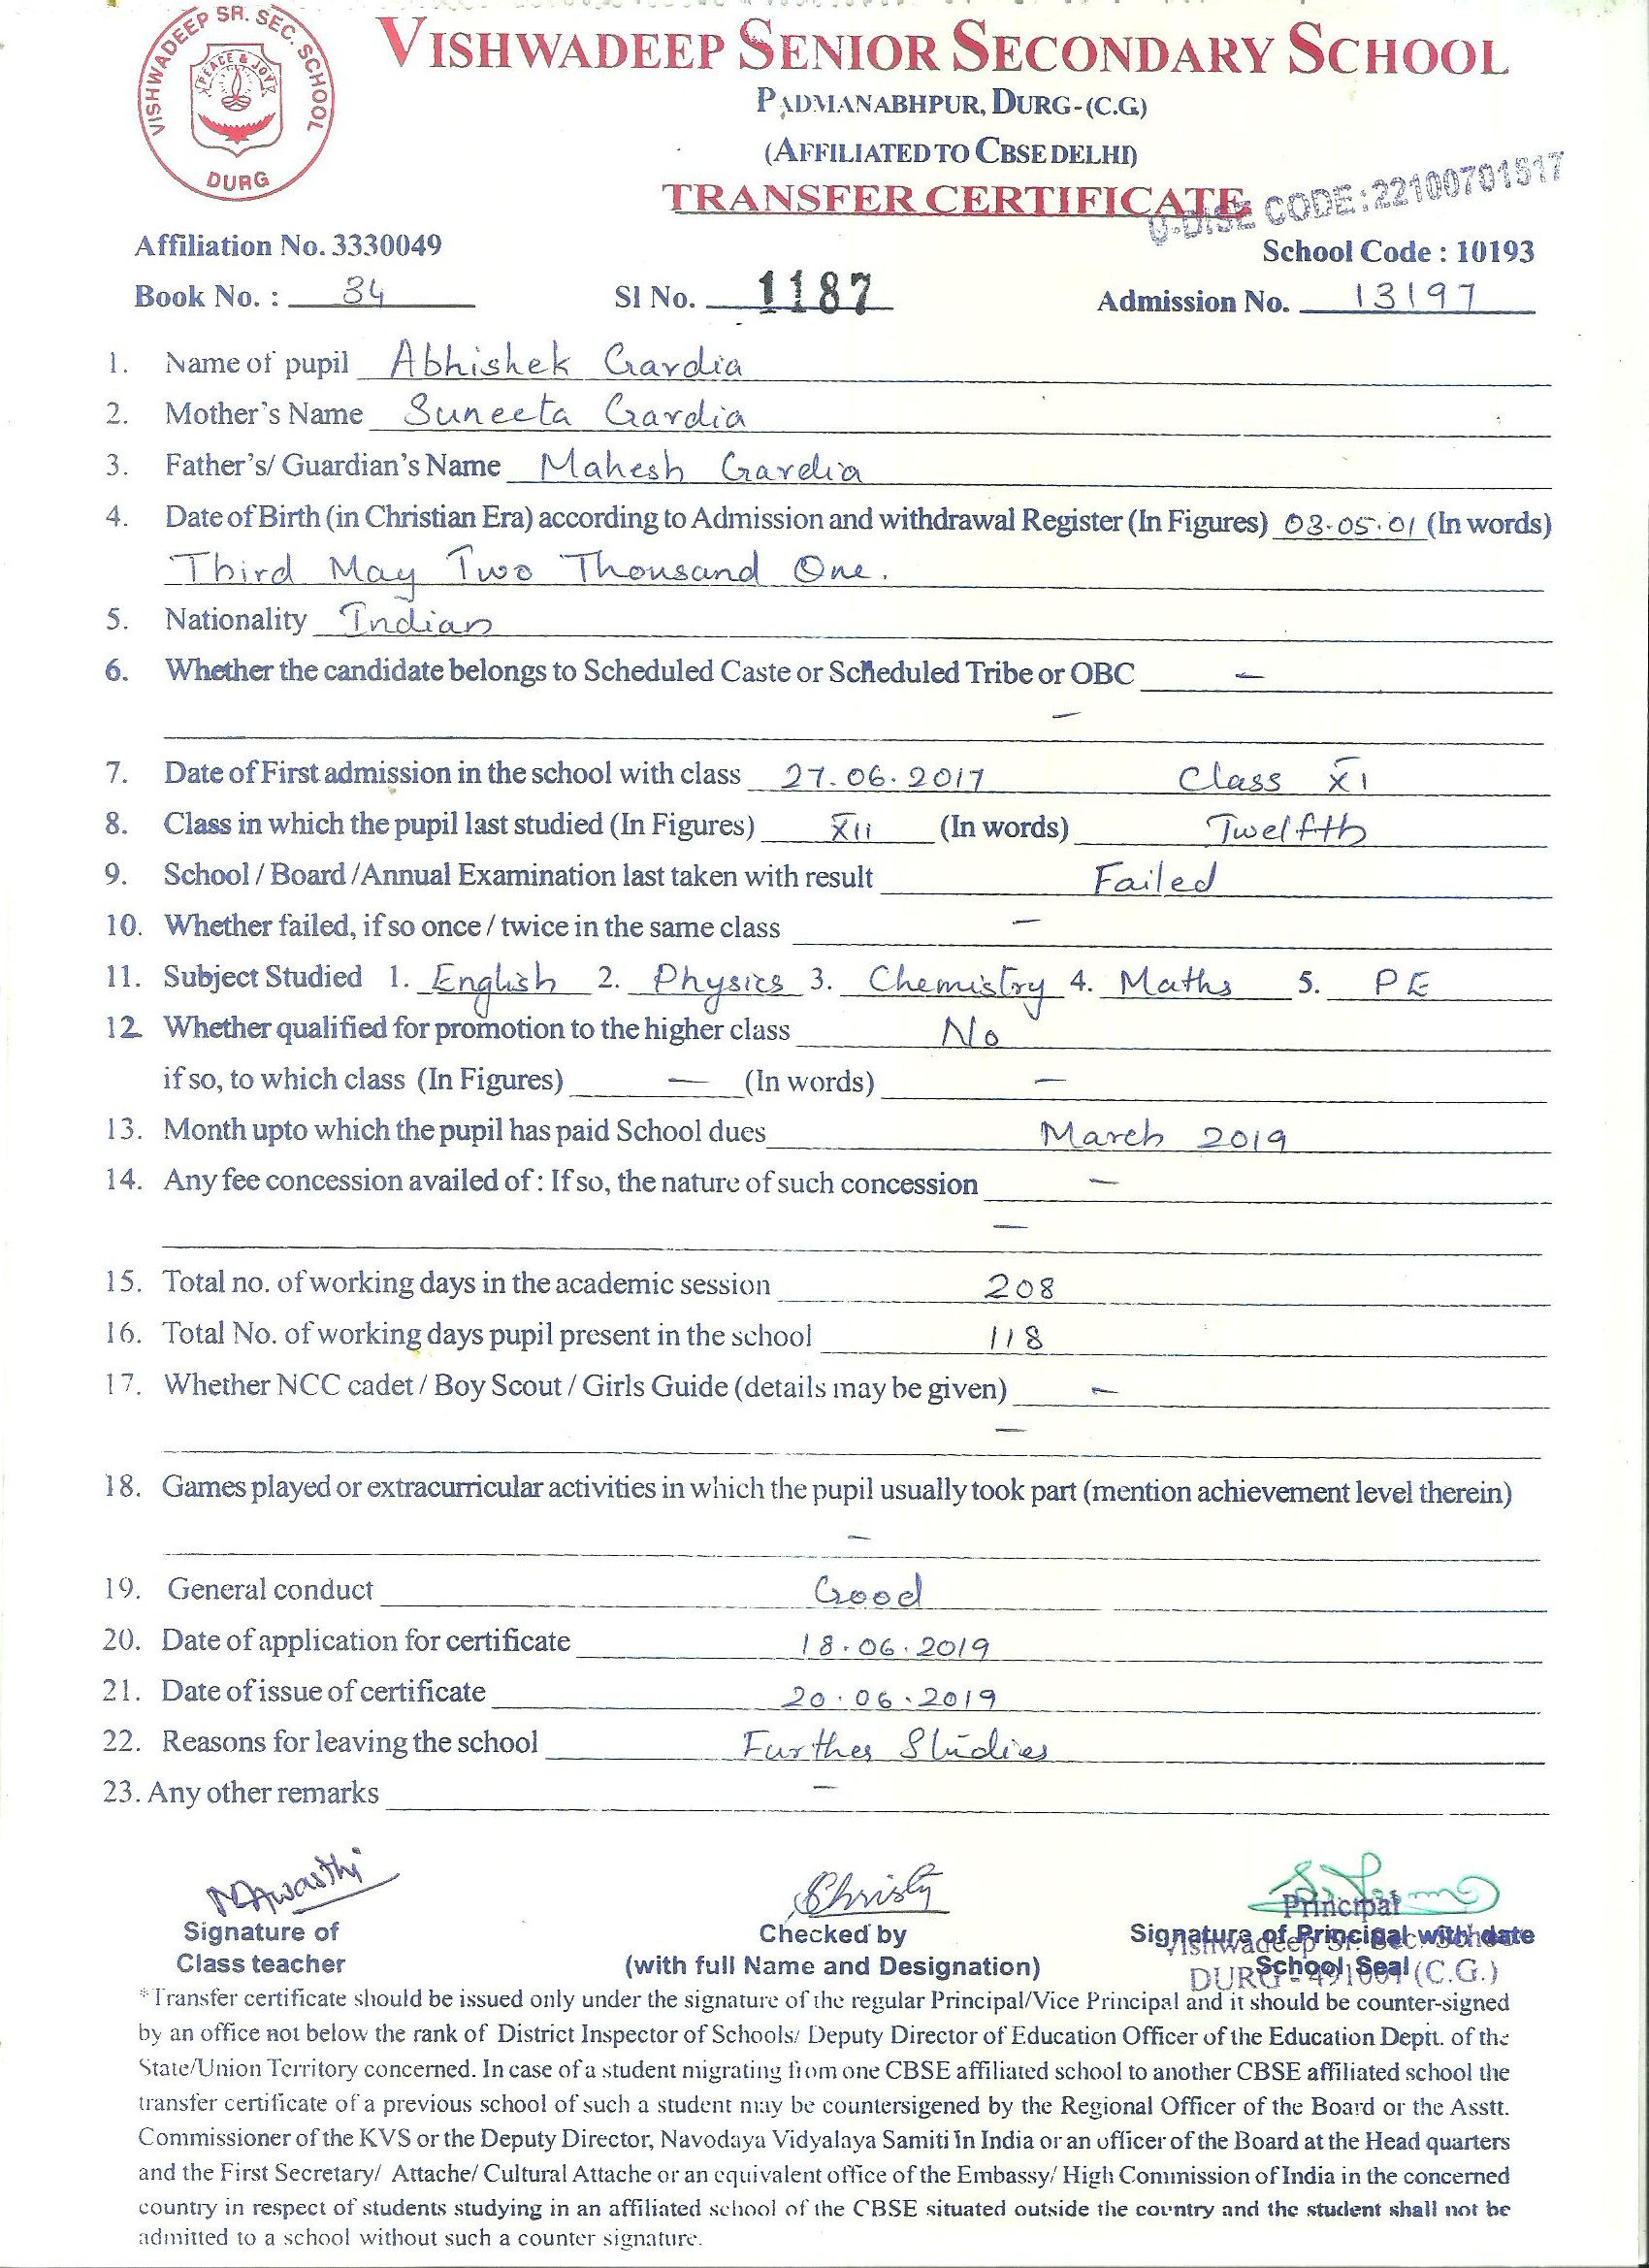 VISHWADEEP SR. SEC. SCHOOL
PEACE & JOY
DURG
VISHWADEEP SENIOR SECONDARY SCHOOL
PADMANABHPUR, DURG-(C.G)
(AFFILIATED TO CBSE DELHI)
TRANSFER CERTIFICATE
U-DISE CODE:22100701517
Affiliation No. 3330049 School Code : 10193
Book No. : 34 Sl No. 1187 Admission No. 13197
1. Name of pupil Abhishek Gardia
2. Mother's Name Suneeta Gardia
3. Father's/ Guardian's Name Mahesh Gardia
4. Date of Birth (in Christian Era) according to Admission and withdrawal Register (In Figures) 03.05.01 (In words)
Third May Two Thousand One.
5. Nationality Indian
6. Whether the candidate belongs to Scheduled Caste or Scheduled Tribe or OBC –
–
7. Date of First admission in the school with class 27.06.2017 Class XI
8. Class in which the pupil last studied (In Figures) XII (In words) Twelfth
9. School / Board /Annual Examination last taken with result Failed
10. Whether failed, if so once / twice in the same class –
11. Subject Studied 1. English 2. Physics 3. Chemistry 4. Maths 5. PE
12. Whether qualified for promotion to the higher class No
if so, to which class (In Figures) – (In words) –
13. Month upto which the pupil has paid School dues March 2019
14. Any fee concession availed of : If so, the nature of such concession –
–
15. Total no. of working days in the academic session 208
16. Total No. of working days pupil present in the school 118
17. Whether NCC cadet / Boy Scout / Girls Guide (details may be given) –
–
18. Games played or extracurricular activities in which the pupil usually took part (mention achievement level therein)
–
19. General conduct Good
20. Date of application for certificate 18.06.2019
21. Date of issue of certificate 20.06.2019
22. Reasons for leaving the school Further Studies
23. Any other remarks –
NAwasthi Christy
Principal
Signature of Checked by Signature of Principal with date
Vishwadeep Sr. Sec. School
Class teacher (with full Name and Designation) School Seal
DURG - 491001 (C.G.)
*Transfer certificate should be issued only under the signature of the regular Principal/Vice Principal and it should be counter-signed
by an office not below the rank of District Inspector of Schools/ Deputy Director of Education Officer of the Education Deptt. of the
State/Union Territory concerned. In case of a student migrating from one CBSE affiliated school to another CBSE affiliated school the
transfer certificate of a previous school of such a student may be countersigened by the Regional Officer of the Board or the Asstt.
Commissioner of the KVS or the Deputy Director, Navodaya Vidyalaya Samiti In India or an officer of the Board at the Head quarters
and the First Secretary/ Attache/ Cultural Attache or an equivalent office of the Embassy/ High Commission of India in the concerned
country in respect of students studying in an affiliated school of the CBSE situated outside the country and the student shall not be
admitted to a school without such a counter signature.